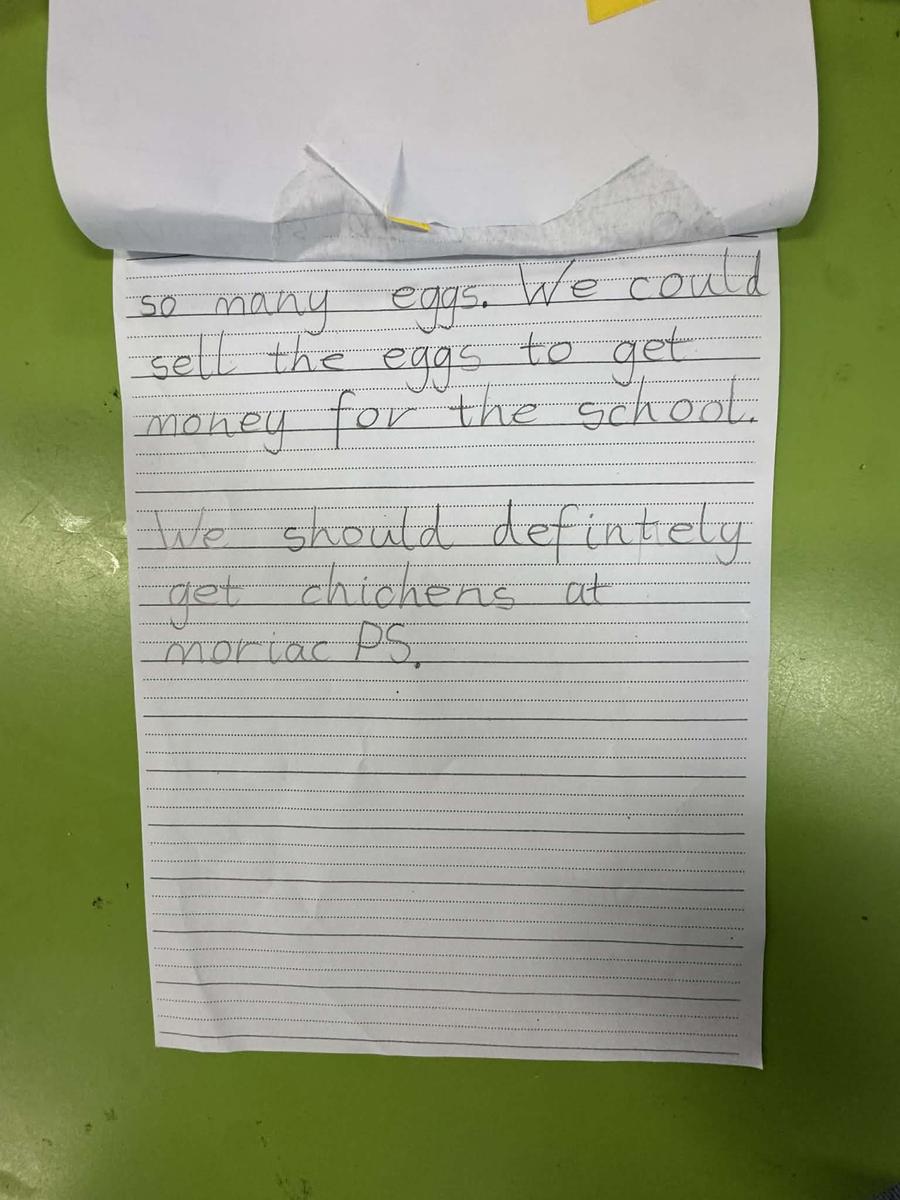 so many eggs. We could
sell the eggs to get
money for the school.
We should defintely
get chichens at
moriac PS.